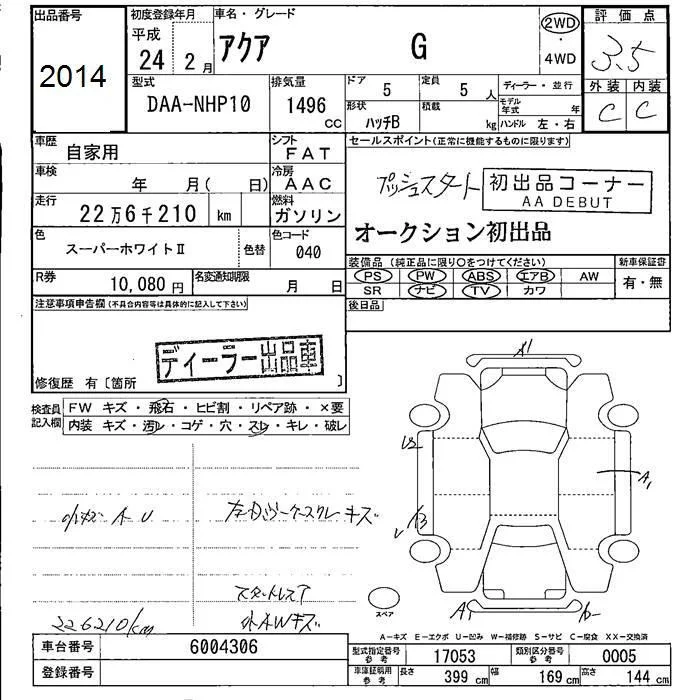 出品番号
2014
初度登録年月
平成
24 2月
車名・グレード
アクア G
2WD
・
4WD
評価点
3.5
外装 内装
C C
型式
DAA-NHP10
排気量
1496 CC
ドア 5
定員 5人
ディーラー・並行
形状 ハッチB
積載 kg
モデル年式 年
ハンドル 左・右
車歴
自家用
シフト
FAT
車検
年 月( 日)
冷房
AAC
走行
22万6千210 km
燃料
ガソリン
色
スーパーホワイトⅡ
色替
色コード
040
R券
10,080円
名変通知期限
月 日
セールスポイント(正常に機能するものに限ります)
プッシュスタート
初出品コーナー
AA DEBUT
オークション初出品
装備品(純正品に限り○をつけてください)
PS PW ABS エアB AW
SR ナビ TV カワ
新車保証書
有・無
後日品
注意事項申告欄(不具合内容等は具体的に記入して下さい)
ディーラー出品車
修復歴 有〔箇所 〕
検査員
記入欄
FW キズ・飛石・ヒビ割・リペア跡・×要
内装 キズ・汚レ・コゲ・穴・スレ・キレ・破レ
小キズ A U
キズ
スタートレス
外AWキズ
226210km
A1
U2
A1
A
スペア
A-キズ E-エクボ U-凹み W-補修跡 S-サビ C-腐食 XX-交換済
車台番号
6004306
登録番号
型式指定番号
参考
17053
類別区分番号
参考
0005
車庫証明用
参考
長さ 399 cm
幅 169 cm
高さ 144 cm